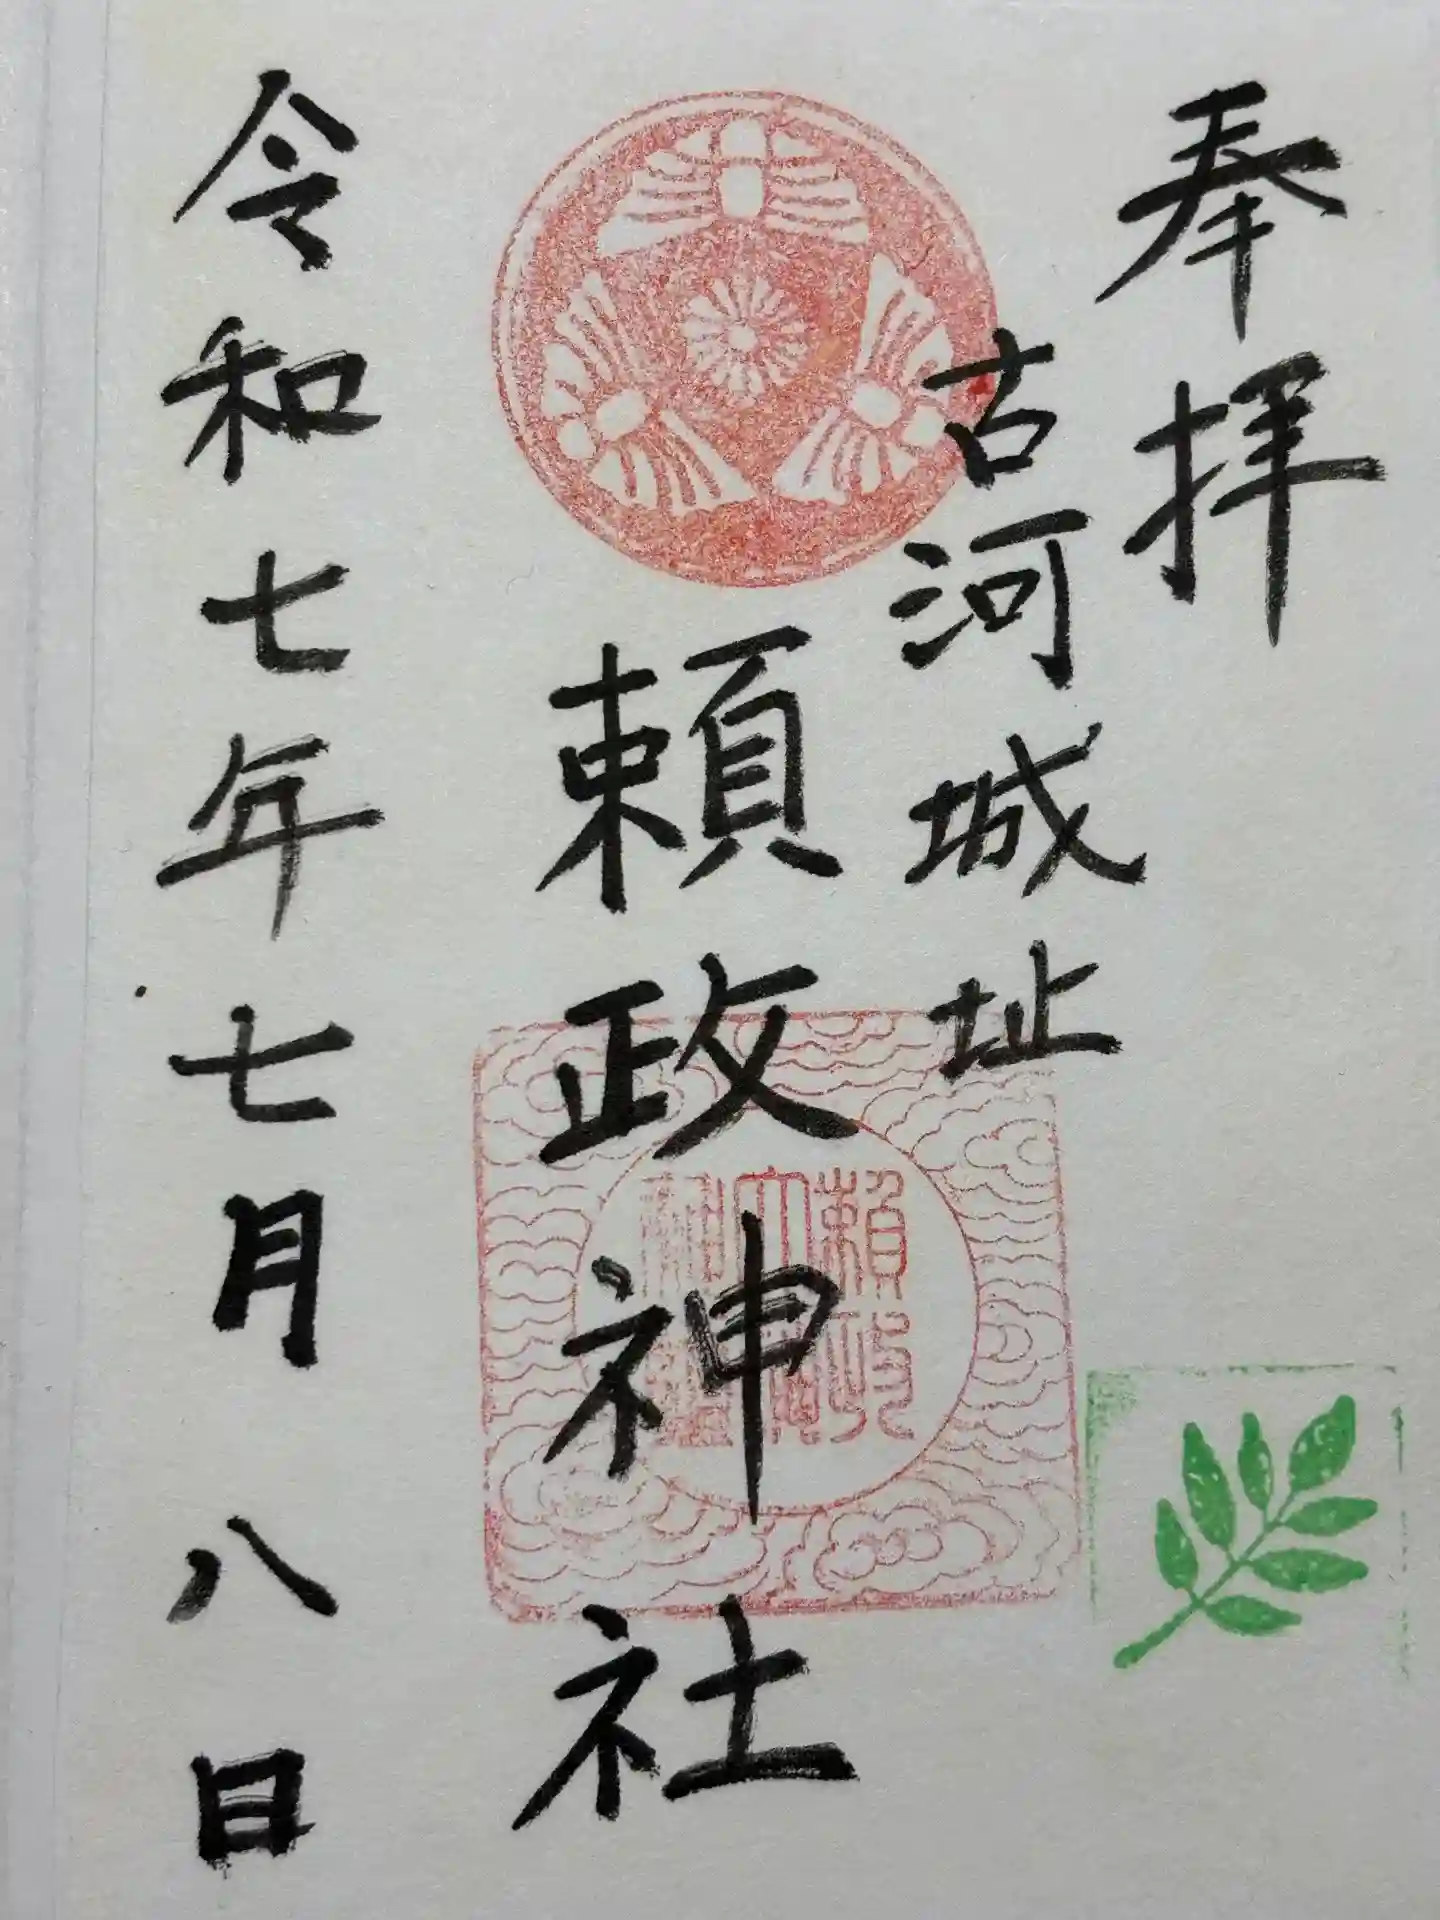 奉拝
古河城址
頼政神社
頼政
令和七年七月八日